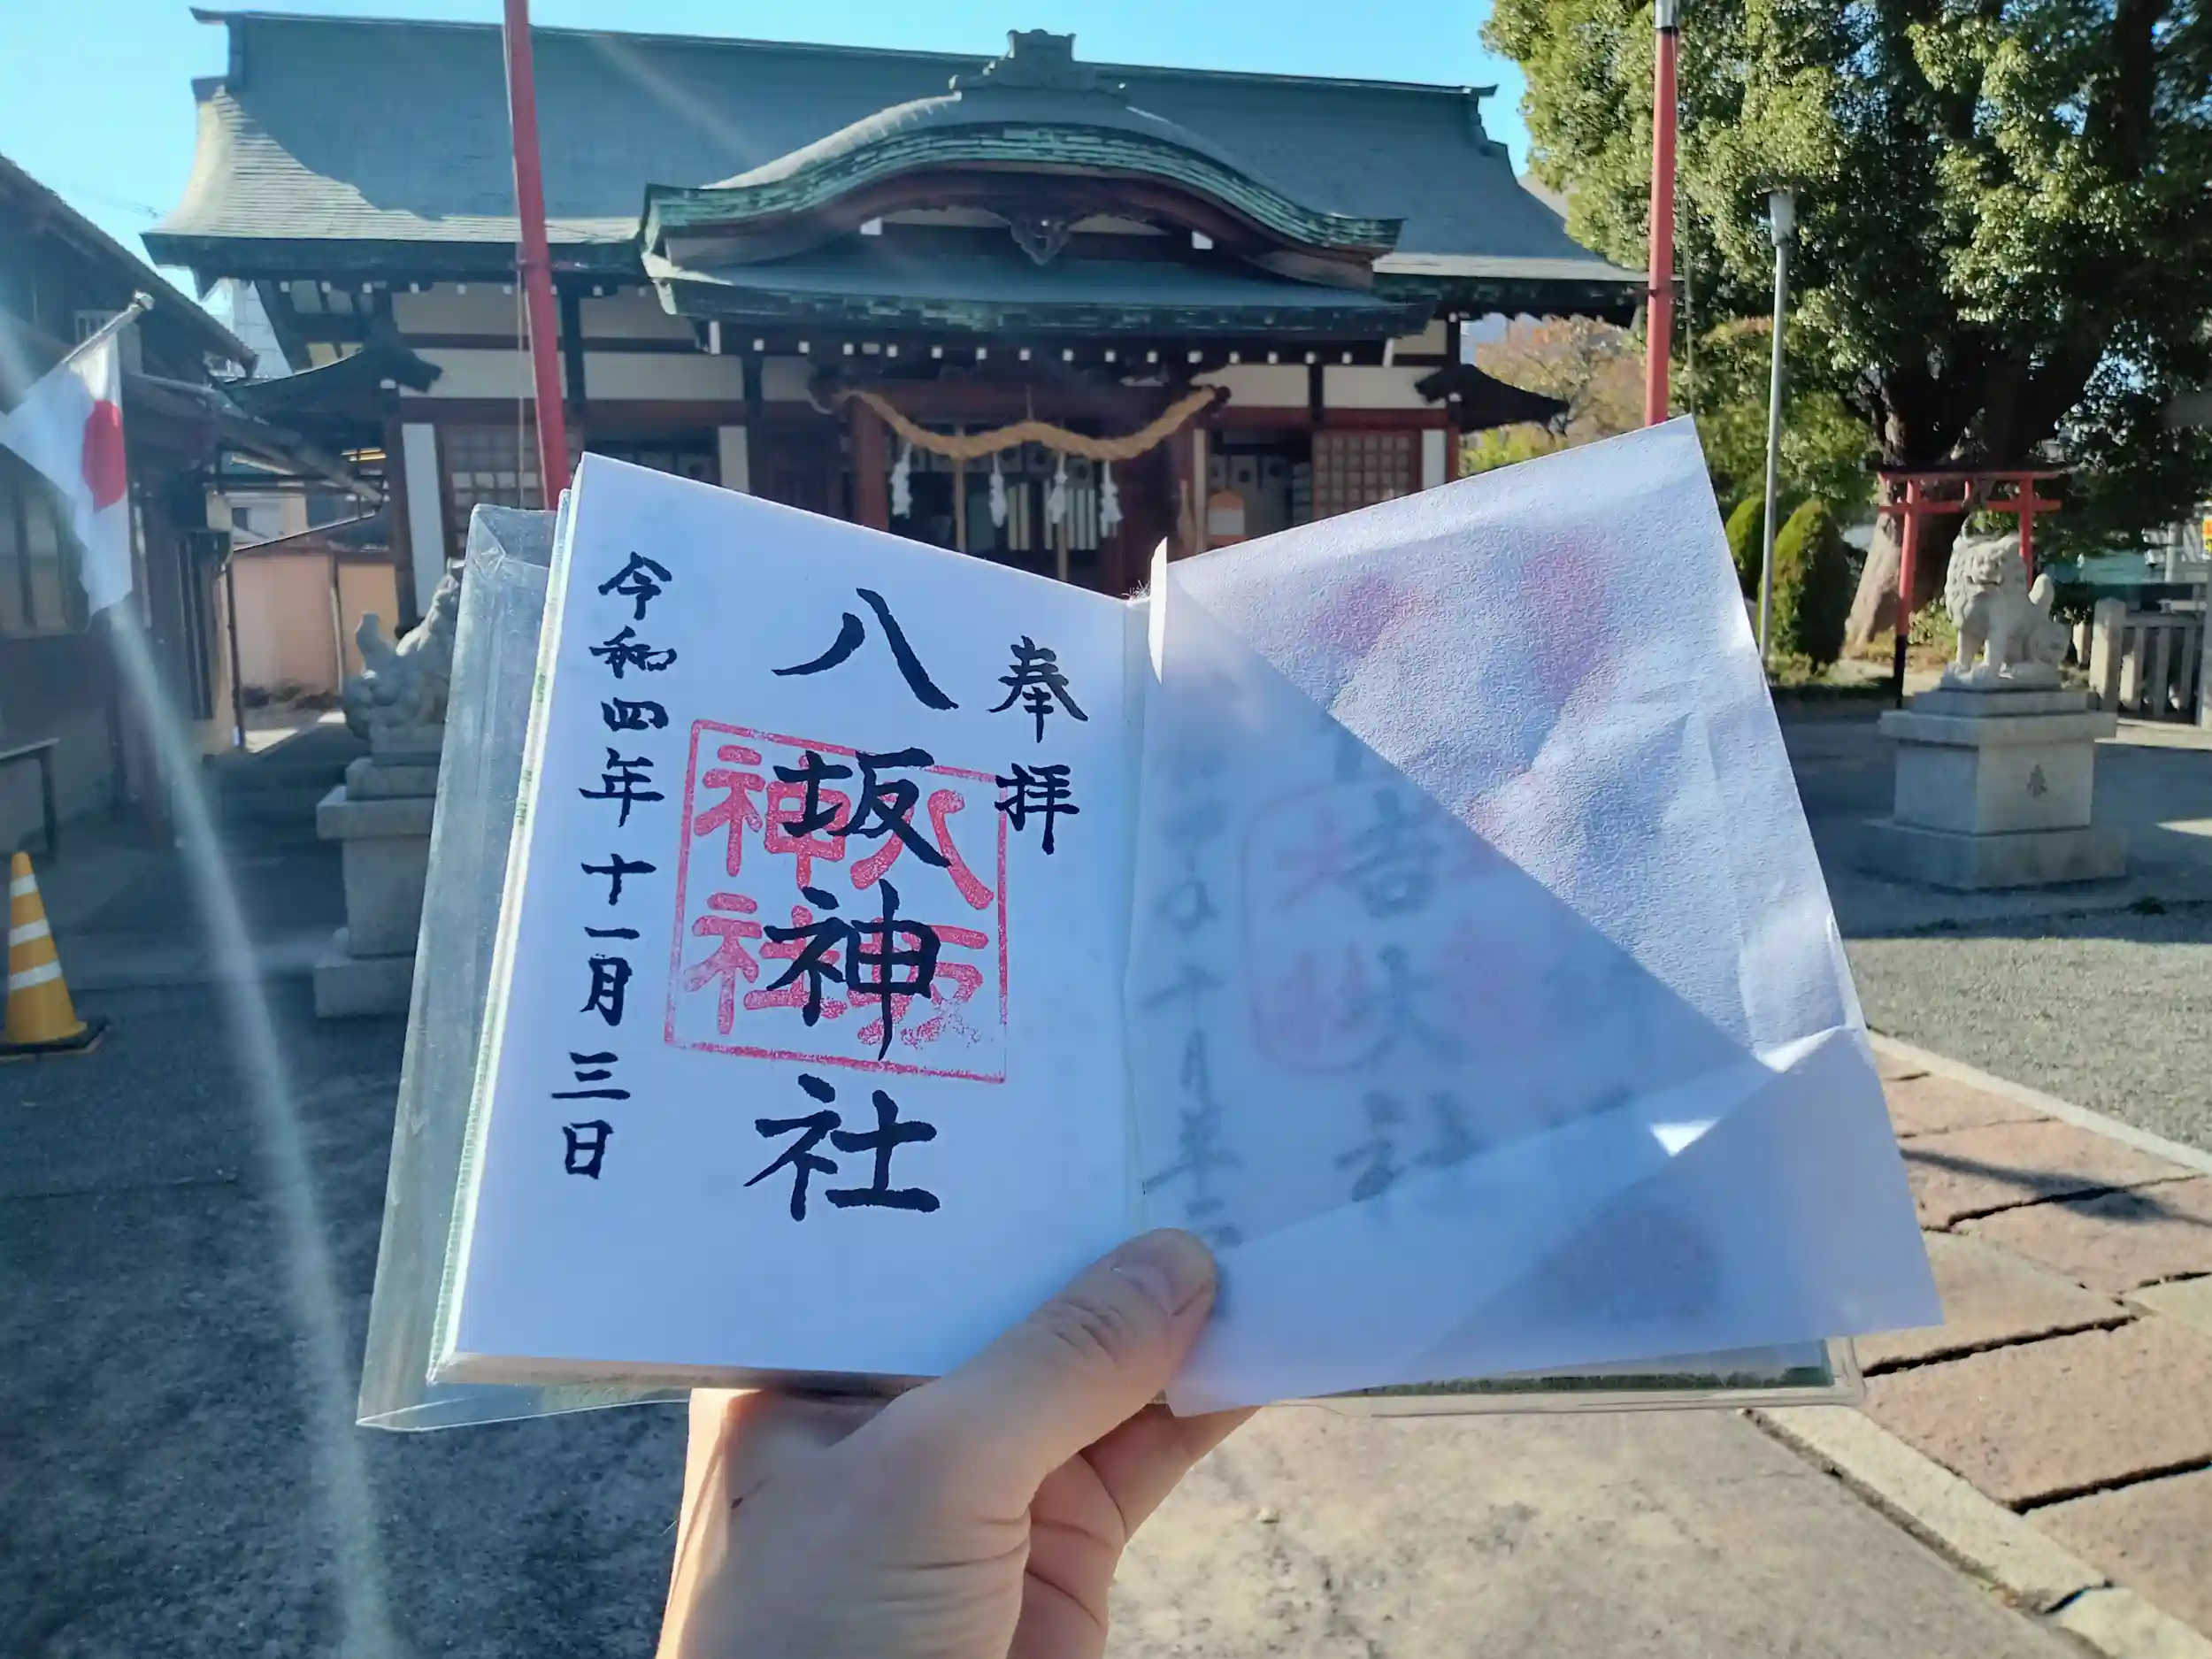 奉拝
八坂神社
八坂
神社
令和四年十一月三日
奉